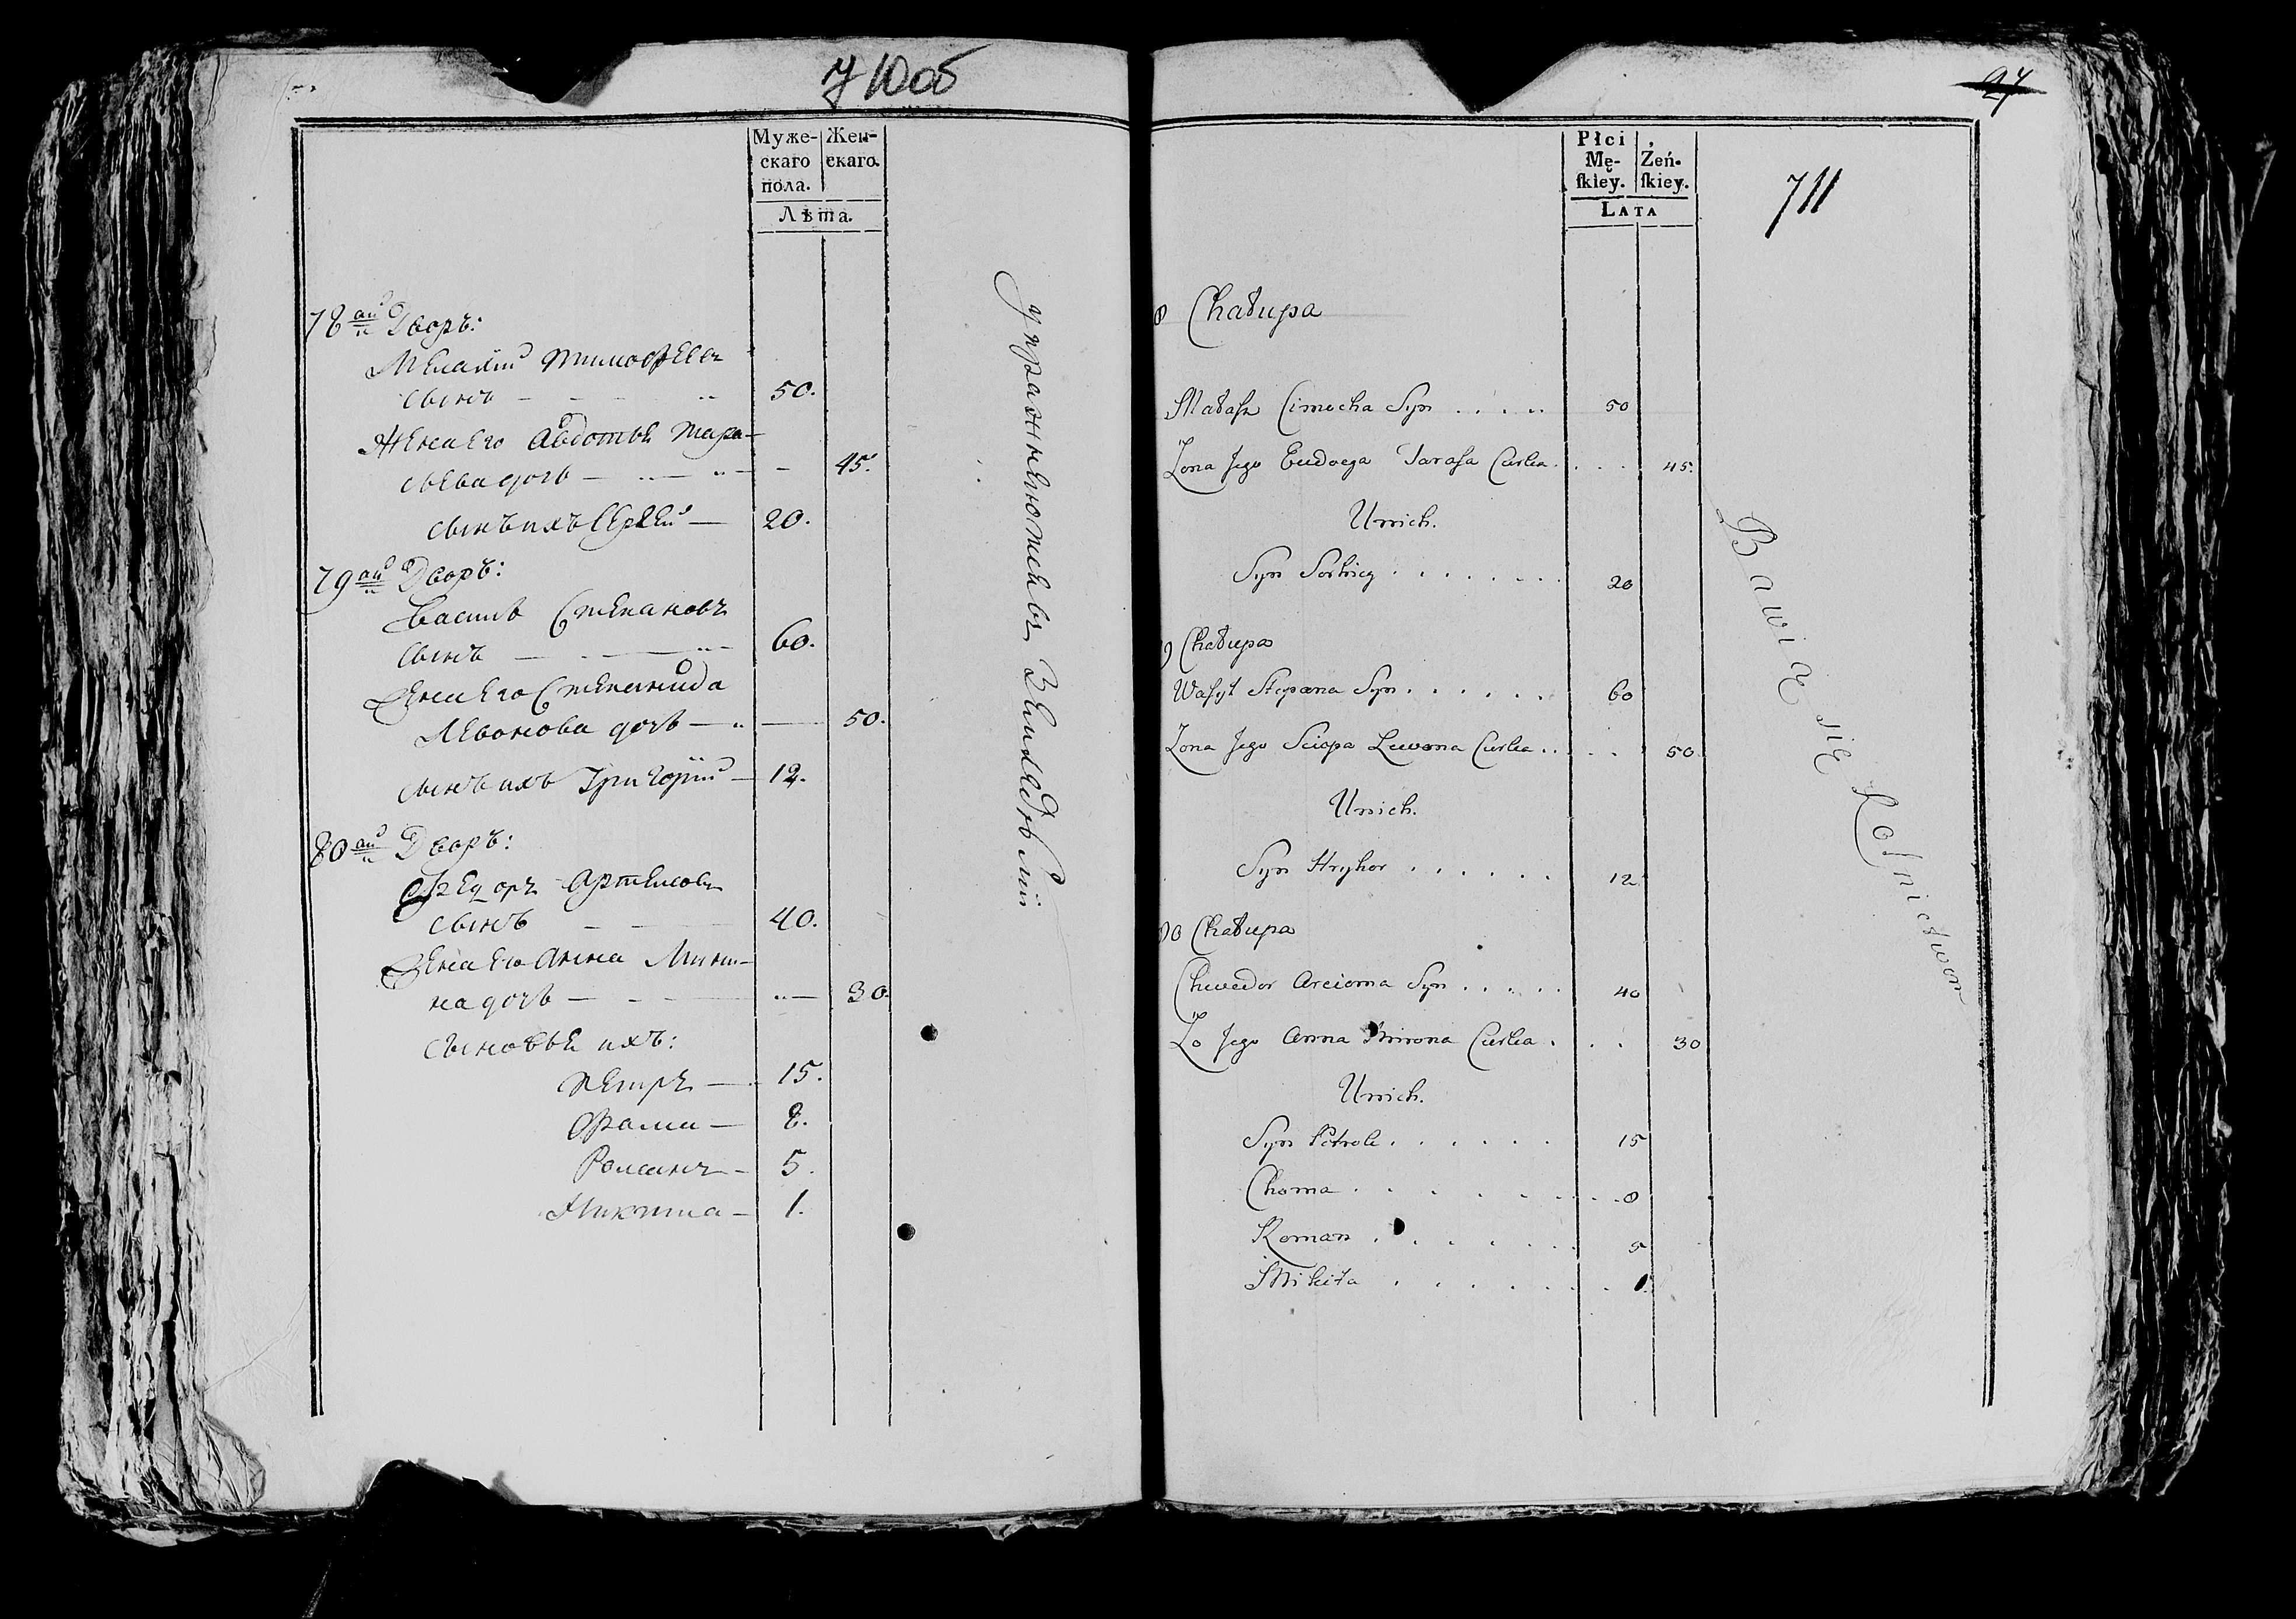 710об
Муже- Жен-
скаго скаго.
пола.
Лѣта.
78ой Дворъ:
Тимофеевъ
сынъ 50.
Жена Его Авдотья Тара-
сьева дочь 45.
сынъ ихъ Сергей 20.
79ой Дворъ:
Василь Степановъ
сынъ 60.
Жена Его Степанида
Левонова дочь 50.
сынъ ихъ Григорий 12.
80ой Дворъ:
Федоръ Артемовъ
сынъ 40.
Жена Его Анна
на дочь 30.
сыновья ихъ:
Петръ 15.
Фама 8.
Романъ 5.
Никита 1.
Упражняются въ Земледѣлии
27
711
Płci
Mę- Żeń-
skiey. skiey.
LATA
8 Chałupa
Małasz Cimocha Syn 50
Zona Jego Eudocya Tarasa Curka 45.
U nich.
Syn Serhiey 20
9 Chałupa
Wasyl Stepana Syn 60
Zona Jego Sciepa Lewona Curka 50.
U nich.
Syn Hryhor 12
80 Chałupa
Chwedor Arcioma Syn 40
Zo Jego Anna Mirona Curka 30
U nich.
Syn Petrok 15
Choma 8
Roman 5
Mikita 1.
Bawią się Rolnictwem